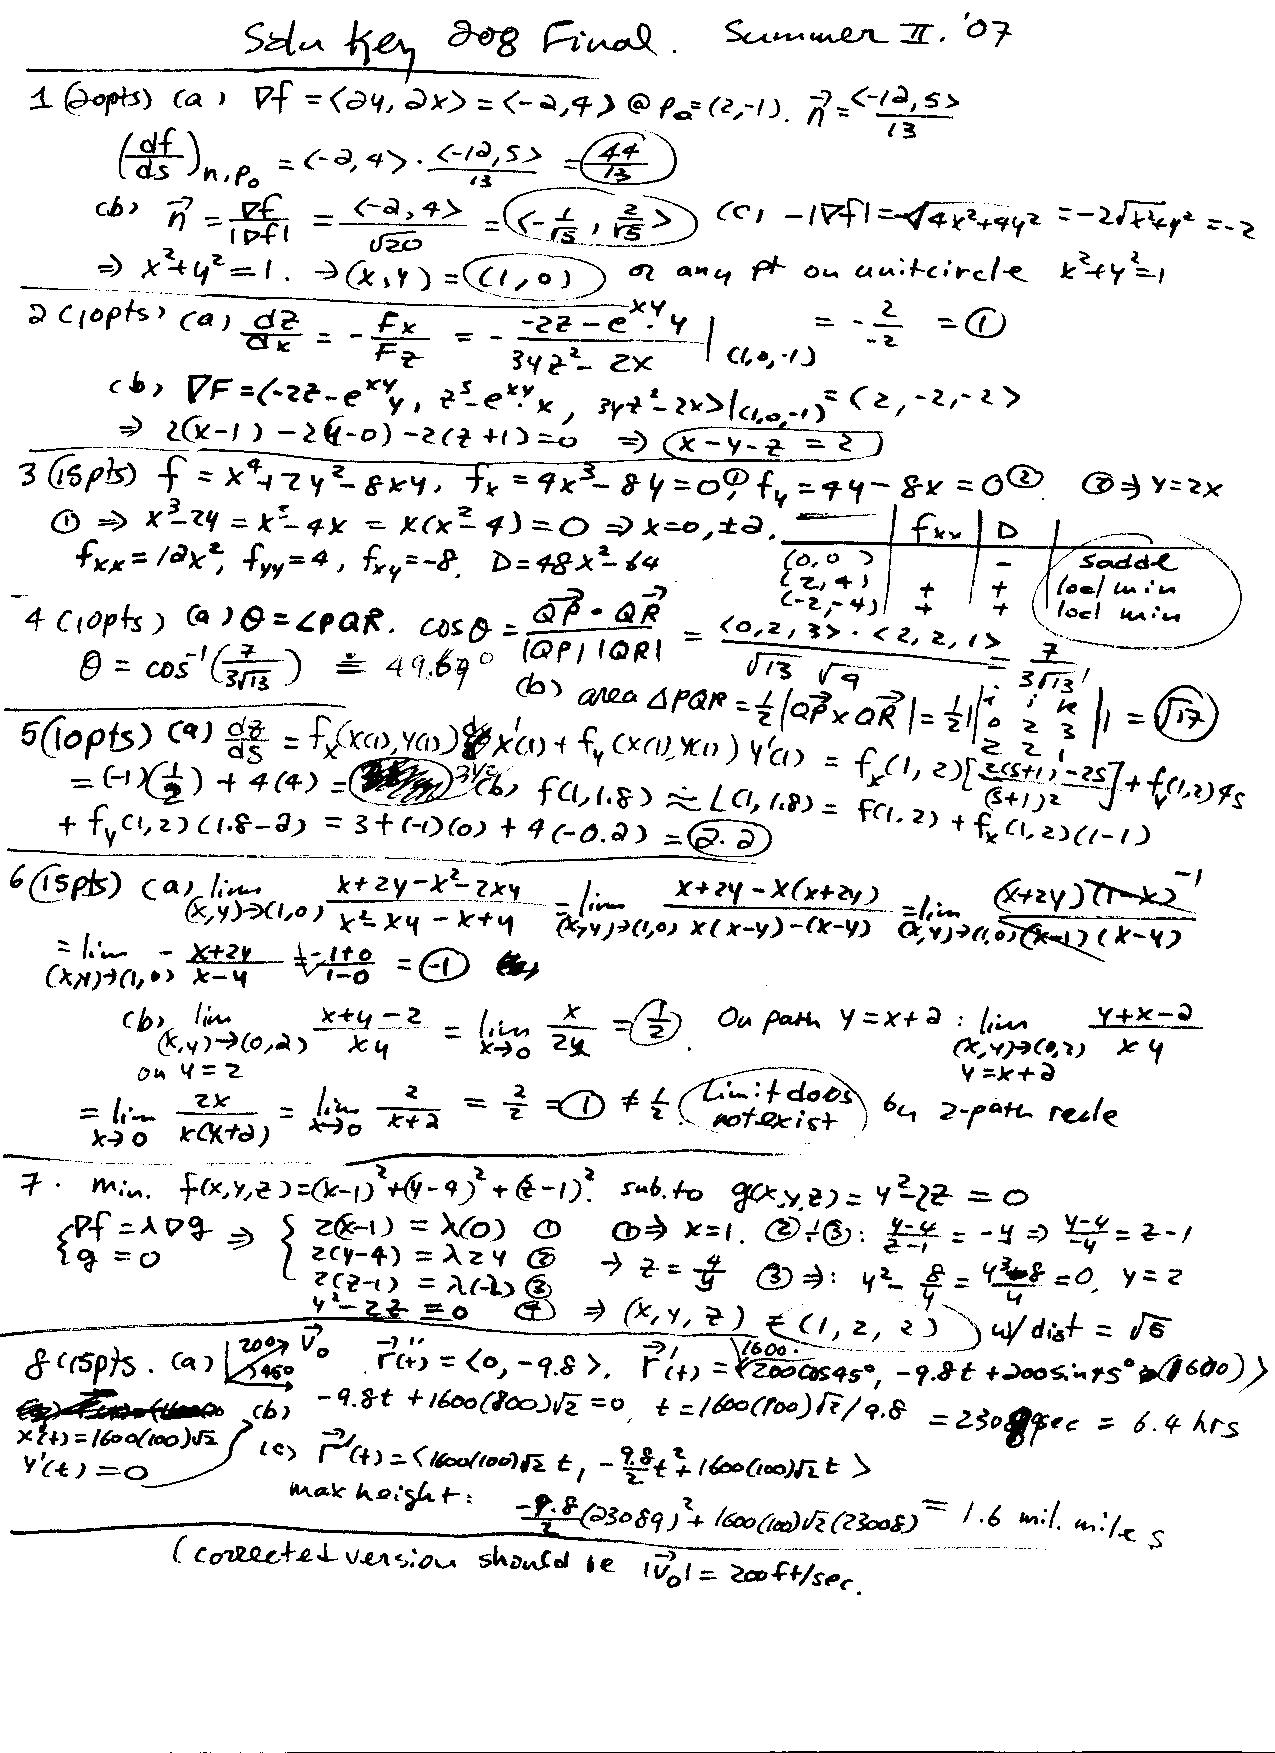 Soln Key 208 Final. Summer II. '07
1 (20pts) (a) ∇f = <2y, 2x> = <-2,4> @ P₀=(2,-1). n⃗ = <-12,5>/13
(df/ds)n,P₀ = <-2,4> · <-12,5>/13 = 44/13
(b) n⃗ = ∇f/|∇f| = <-2,4>/√20 = <-1/√5, 2/√5> (c) -|∇f| = -√4x²+4y² = -2√x²+y² = -2
⇒ x²+y²=1. → (x,y) = (1,0) or any pt on unit circle x²+y²=1
2 (10pts) (a) dz/dx = - Fx/Fz = - (-2z-e^xy·y)/(3yz²-2x) |(1,0,-1) = - 2/-2 = 1
(b) ∇F = <-2z-e^xy y, z³-e^xy·x, 3yz²-2x>|(1,0,-1) = <2,-2,-2>
⇒ 2(x-1) - 2(y-0) - 2(z+1) = 0 ⇒ x-y-z = 2
3 (15pts) f = x⁴+2y²-8xy, fx = 4x³-8y=0 ①, fy = 4y-8x=0 ②. ② ⇒ y=2x
① ⇒ x³-2y = x³-4x = x(x²-4) = 0 ⇒ x=0, ±2. | fxx | D |
fxx=12x², fyy=4, fxy=-8. D=48x²-64 (0,0) | | - | saddl
(2,4) | + | + | locl min
(-2,-4) | + | + | locl min
4 (10pts) (a) θ = ∠PQR. cosθ = QP⃗ · QR⃗ / |QP| |QR| = <0,2,3> · <2,2,1> / √13 √9 = 7/3√13
θ = cos⁻¹(7/3√13) ≐ 49.69° (b) area △PQR = ½|QP⃗ × QR⃗| = ½|| i j k 0 2 3 2 2 1 || = √17
5 (10pts) (a) dz/ds = fx(x(1),y(1)) x'(1) + fy(x(1),y(1)) y'(1) = fx(1,2)[2(s+1)-2s/(s+1)²] + fy(1,2)4s
= (-1)(½) + 4(4) = 31/2 (b) f(1,1.8) ≈ L(1,1.8) = f(1,2) + fx(1,2)(1-1)
+ fy(1,2)(1.8-2) = 3+(-1)(0) + 4(-0.2) = 2.2
6 (15pts) (a) lim (x,y)→(1,0) x+2y-x²-2xy / x²-xy-x+y = lim (x,y)→(1,0) x+2y-x(x+2y) / x(x-y)-(x-y) = lim (x,y)→(1,0) (x+2y)(1-x) -1 / (x-1)(x-y)
= lim (x,y)→(1,0) - x+2y / x-y = -1+0 / 1-0 = -1
(b) lim (x,y)→(0,2) on y=2 x+y-2 / xy = lim x→0 x/2x = 1/2. On path y=x+2 : lim (x,y)→(0,2) y=x+2 y+x-2 / xy
= lim x→0 2x / x(x+2) = lim x→0 2 / x+2 = 2/2 = 1 ≠ ½ Limit does not exist by 2-path rule
7. min. f(x,y,z)=(x-1)²+(y-4)²+(z-1)². sub. to g(x,y,z) = y²-2z = 0
{ ∇f = λ∇g ⇒ { 2(x-1) = λ(0) ① ① ⇒ x=1. ②÷③: y-4/z-1 = -y ⇒ y-4/-y = z-1
g = 0 2(y-4) = λ2y ② → z = 4/y ③ ⇒: y² - 8/y = y³-8/y = 0. y=2
2(z-1) = λ(-2) ③
y²-2z = 0 ④ ⇒ (x,y,z) = (1,2,2) w/ dist = √6
8 (15pts. (a) 200 v⃗₀ 45° r⃗''(t) = <0,-9.8>. r⃗'(t) = <1600·200cos45°, -9.8t+200sin45°(1600)>
(b) -9.8t + 1600(800)√2 = 0 t = 1600(100)√2/9.8 = 23089sec = 6.4 hrs
x'(t) = 1600(100)√2
y'(t) = 0 (c) r⃗(t) = <1600(100)√2 t, -9.8/2 t² + 1600(100)√2 t>
max height: -9.8/2 (23089)² + 1600(100)√2(23008) = 1.6 mil. miles
(corrected version should be |v⃗₀| = 200ft/sec.